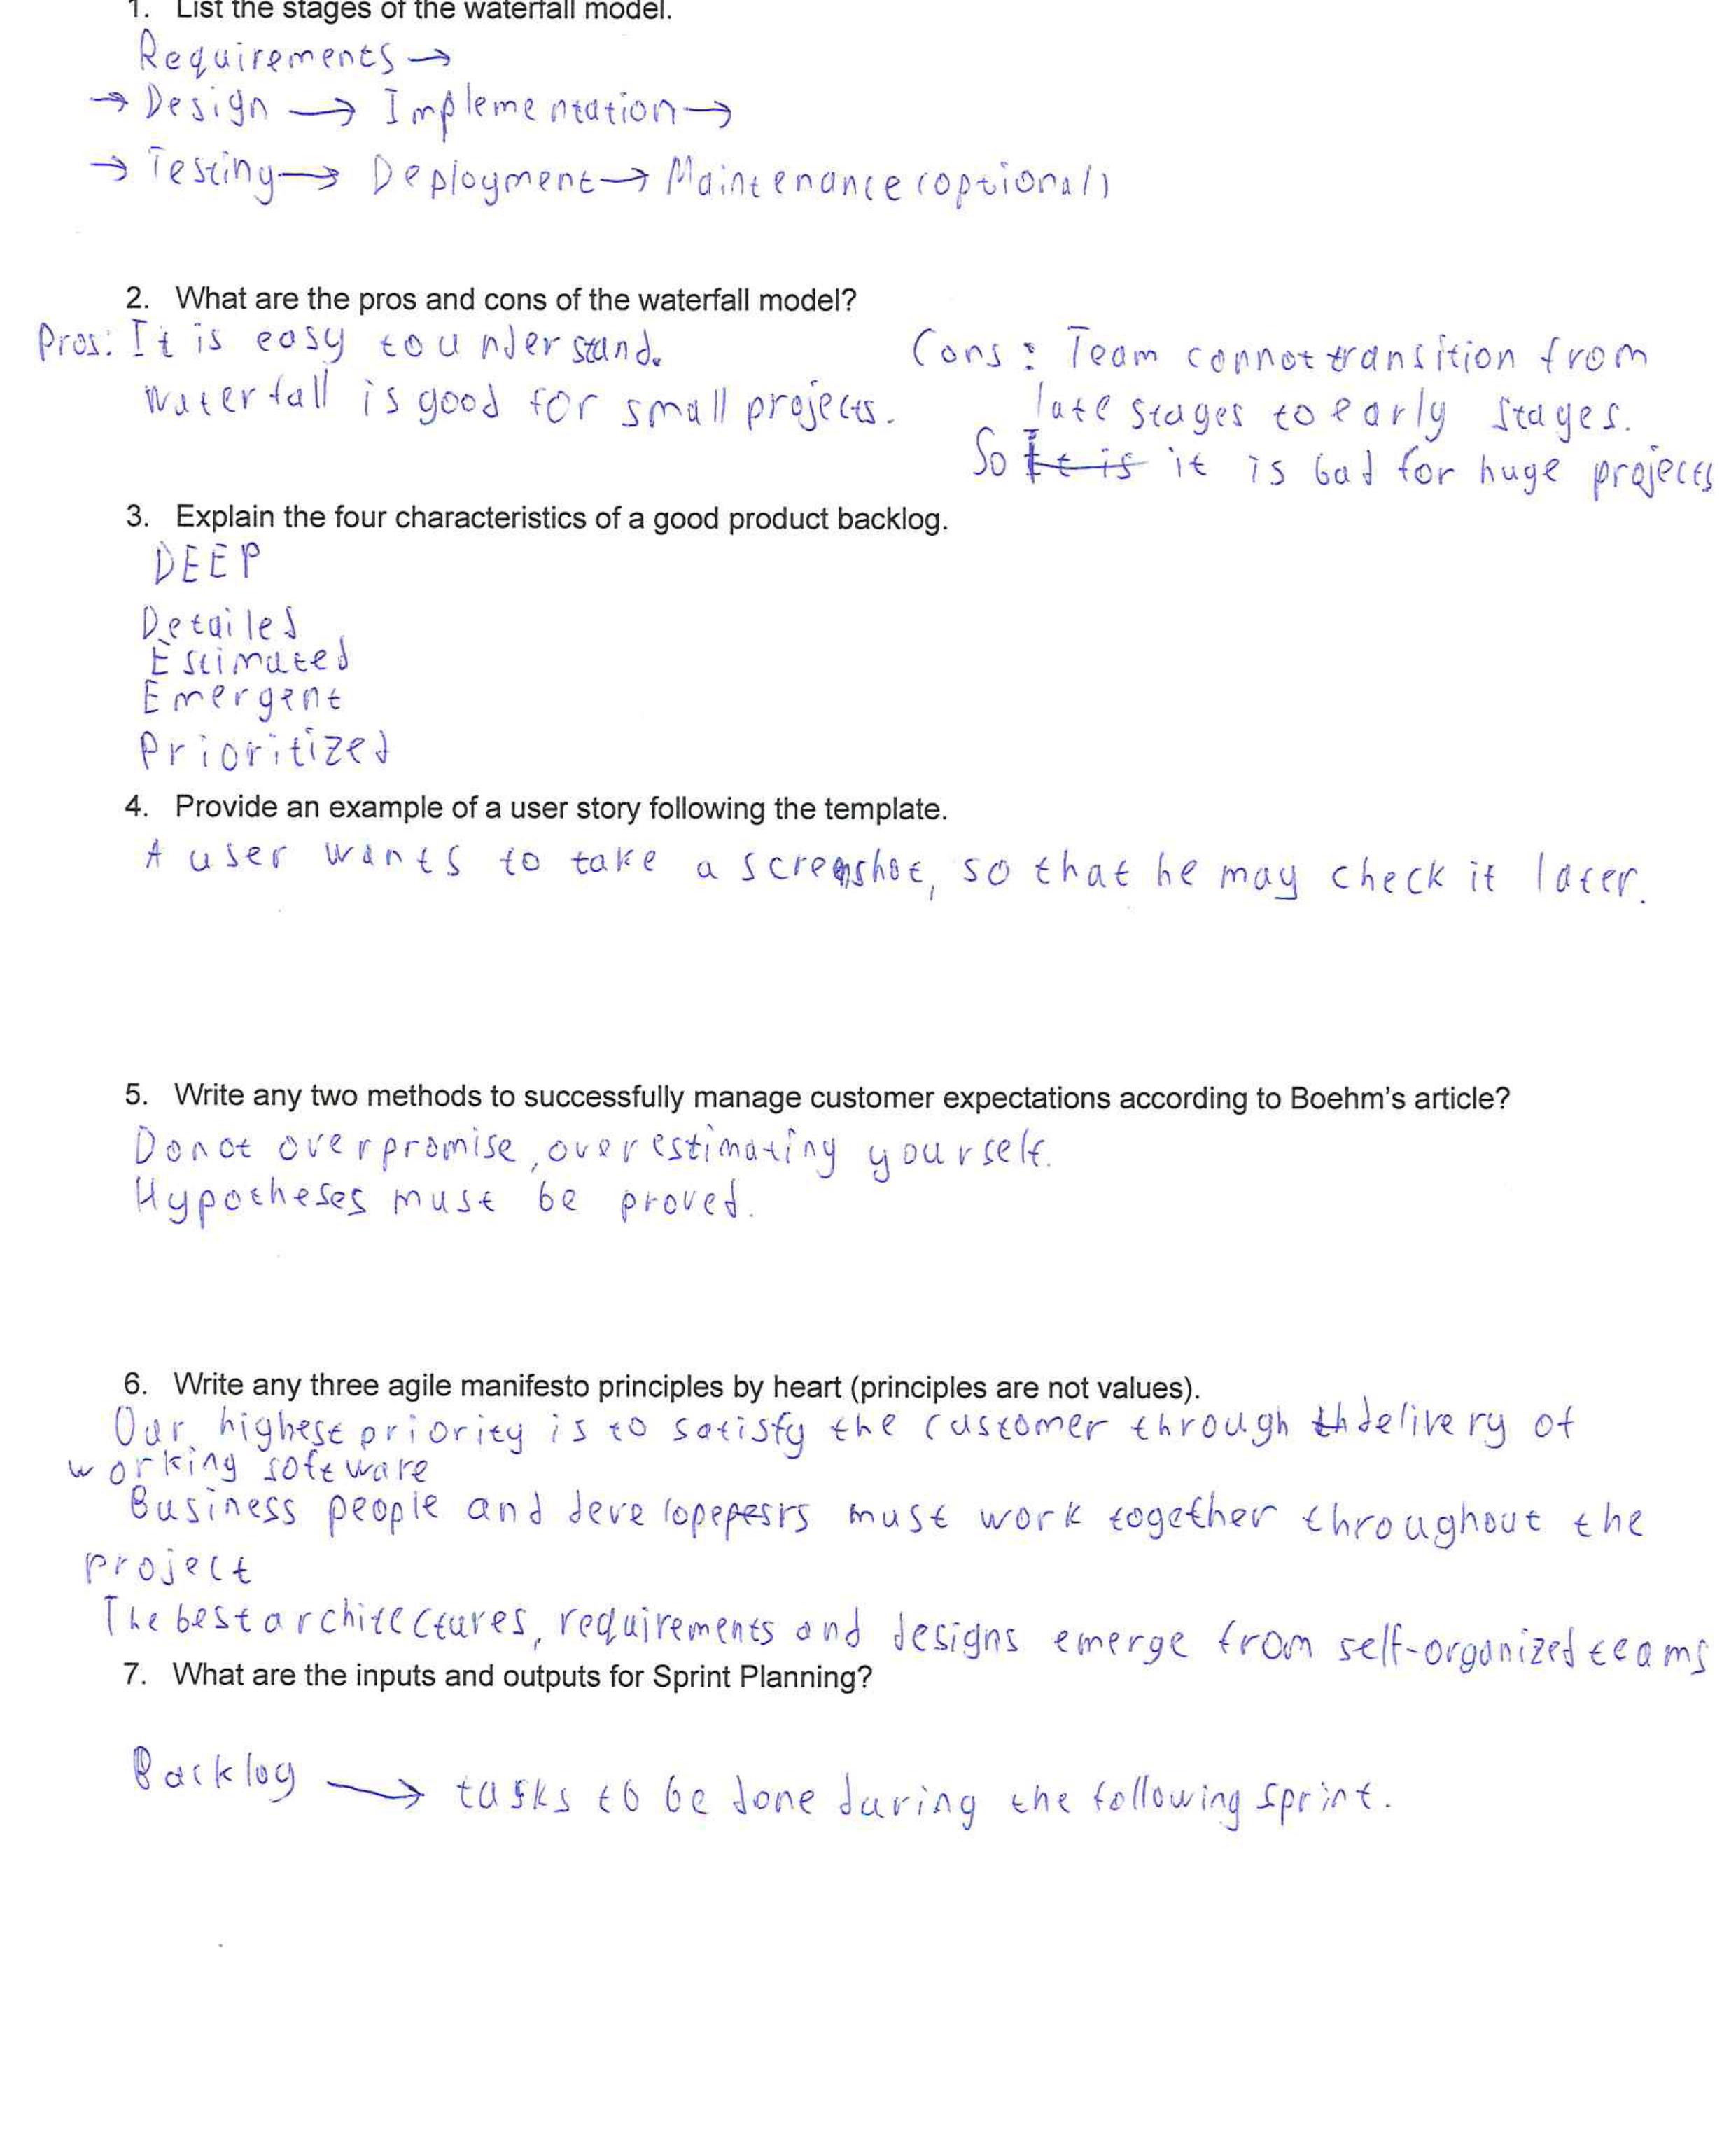 1. List the stages of the waterfall model.
Requirements →
→ Design → Implementation →
→ Testing → Deployment → Maintenance (optional)
2. What are the pros and cons of the waterfall model?
Pros: It is easy to understand.
Waterfall is good for small projects.
Cons: Team cannot transition from
late stages to early stages.
So It is it is bad for huge projects
3. Explain the four characteristics of a good product backlog.
DEEP
Detailed
Estimated
Emergent
Prioritized
4. Provide an example of a user story following the template.
A user wants to take a screenshot, so that he may check it later.
5. Write any two methods to successfully manage customer expectations according to Boehm's article?
Do not overpromise, overestimating yourself.
Hypotheses must be proved.
6. Write any three agile manifesto principles by heart (principles are not values).
Our highest priority is to satisfy the customer through th delivery of
working software
Business people and must work together throughout the
project
The best architectures, requirements and designs emerge from self-organized teams
7. What are the inputs and outputs for Sprint Planning?
Backlog → tasks to be done during the following sprint.